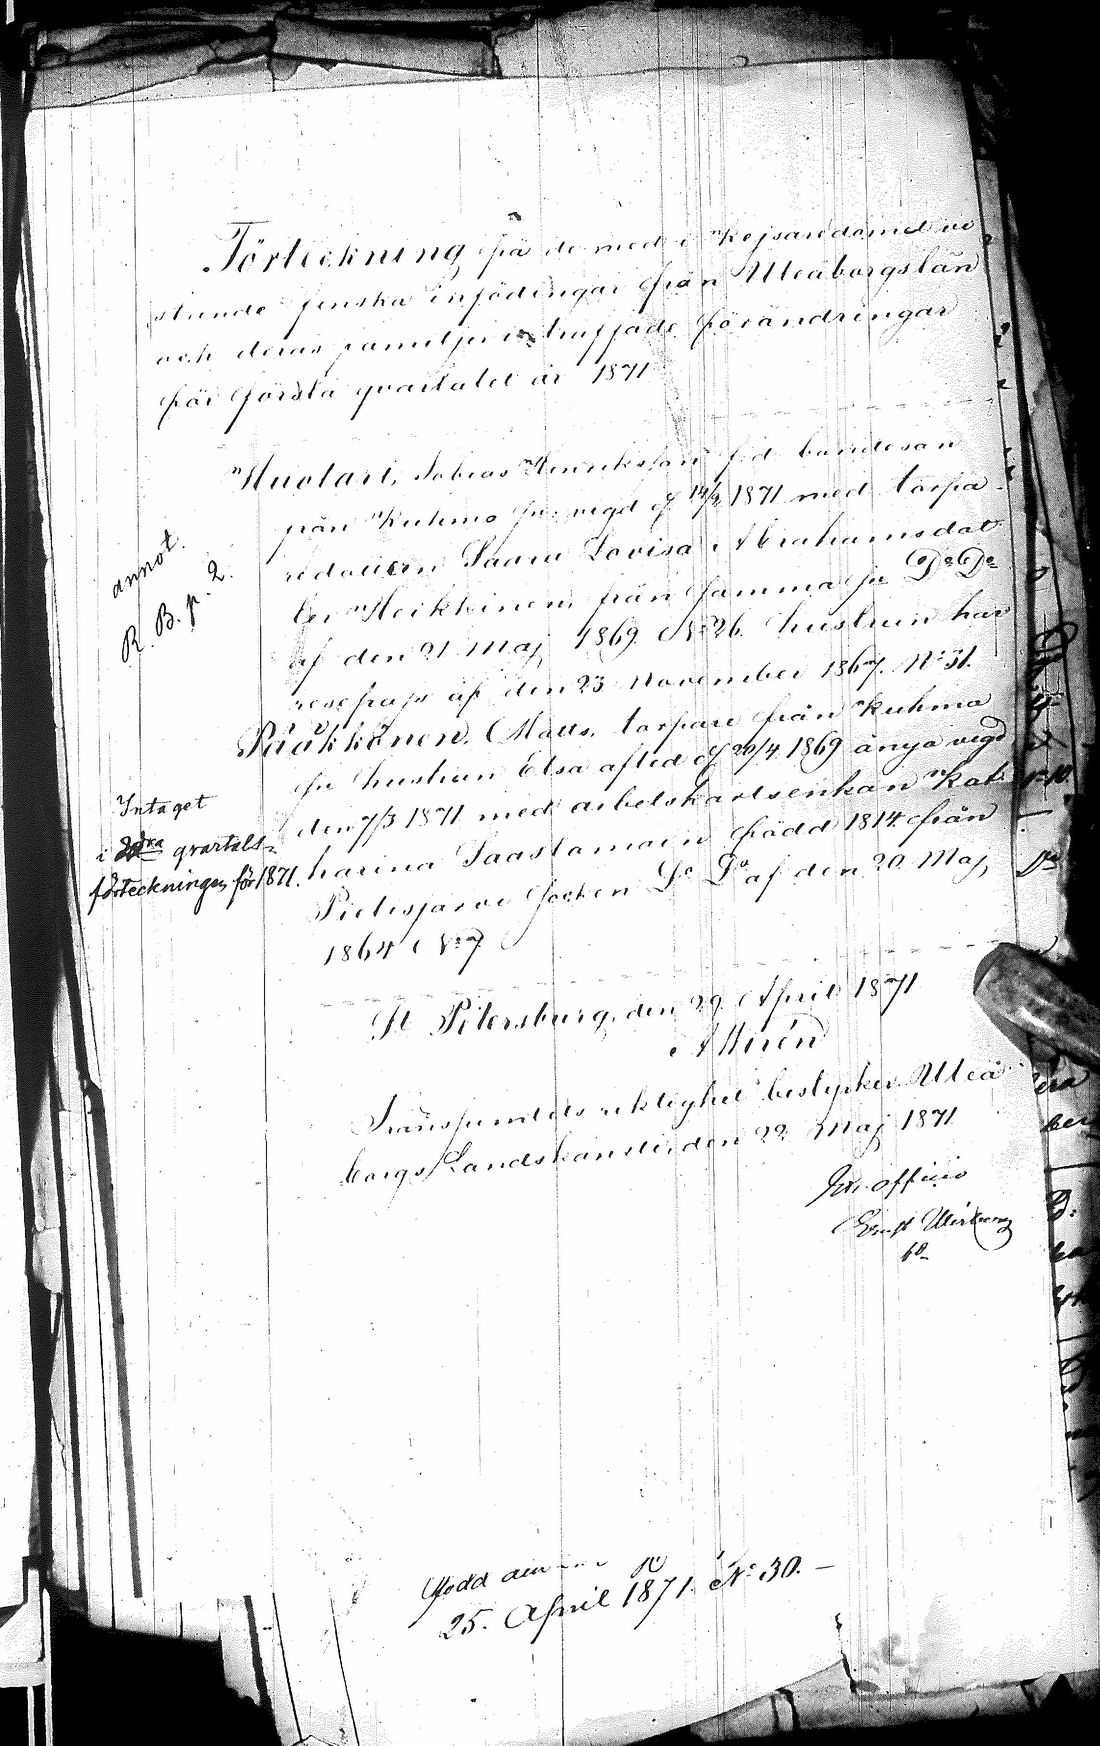 Förteckning på de med i Kejsaredömet vi
stande finska infödingar från Uleåborgs län
och deras familjer inträffade förändringar
för första qvartalet år 1871
Huotari, Tobias Henriksson f.d. bondeson
från Kuhmo fr. vigd d 14/2 1871 med torpa-
redottren Saara Lovisa Abrahamsdot
ter Heikkinen, från samma fr Do Do
af den 21 Maj 1869 No 26. hustrun har
resepass af den 23 November 1867. No 31.
Pääkkönen, Matts, torpare från Kuhmo
fr hustrun Elsa afled d 20/4 1869 ånyo vigd
den 7/3 1871 med arbetskarlsenkan Kat
harina Saastamoin född 1814 från
Pielisjärvi socken Do Do af den 20 Maj
1864 No 7
annot.
R. B. p. 2.
Intaget
i 2dra qvartals-
förteckningen för 1871.
St Petersburg, den 29 April 1871
Transsumtets riktighet bestyrker. Uleå
borgs Landskansli, den 22 Maj 1871
Ex officio
Ernst
25. April 1871. No 30. –